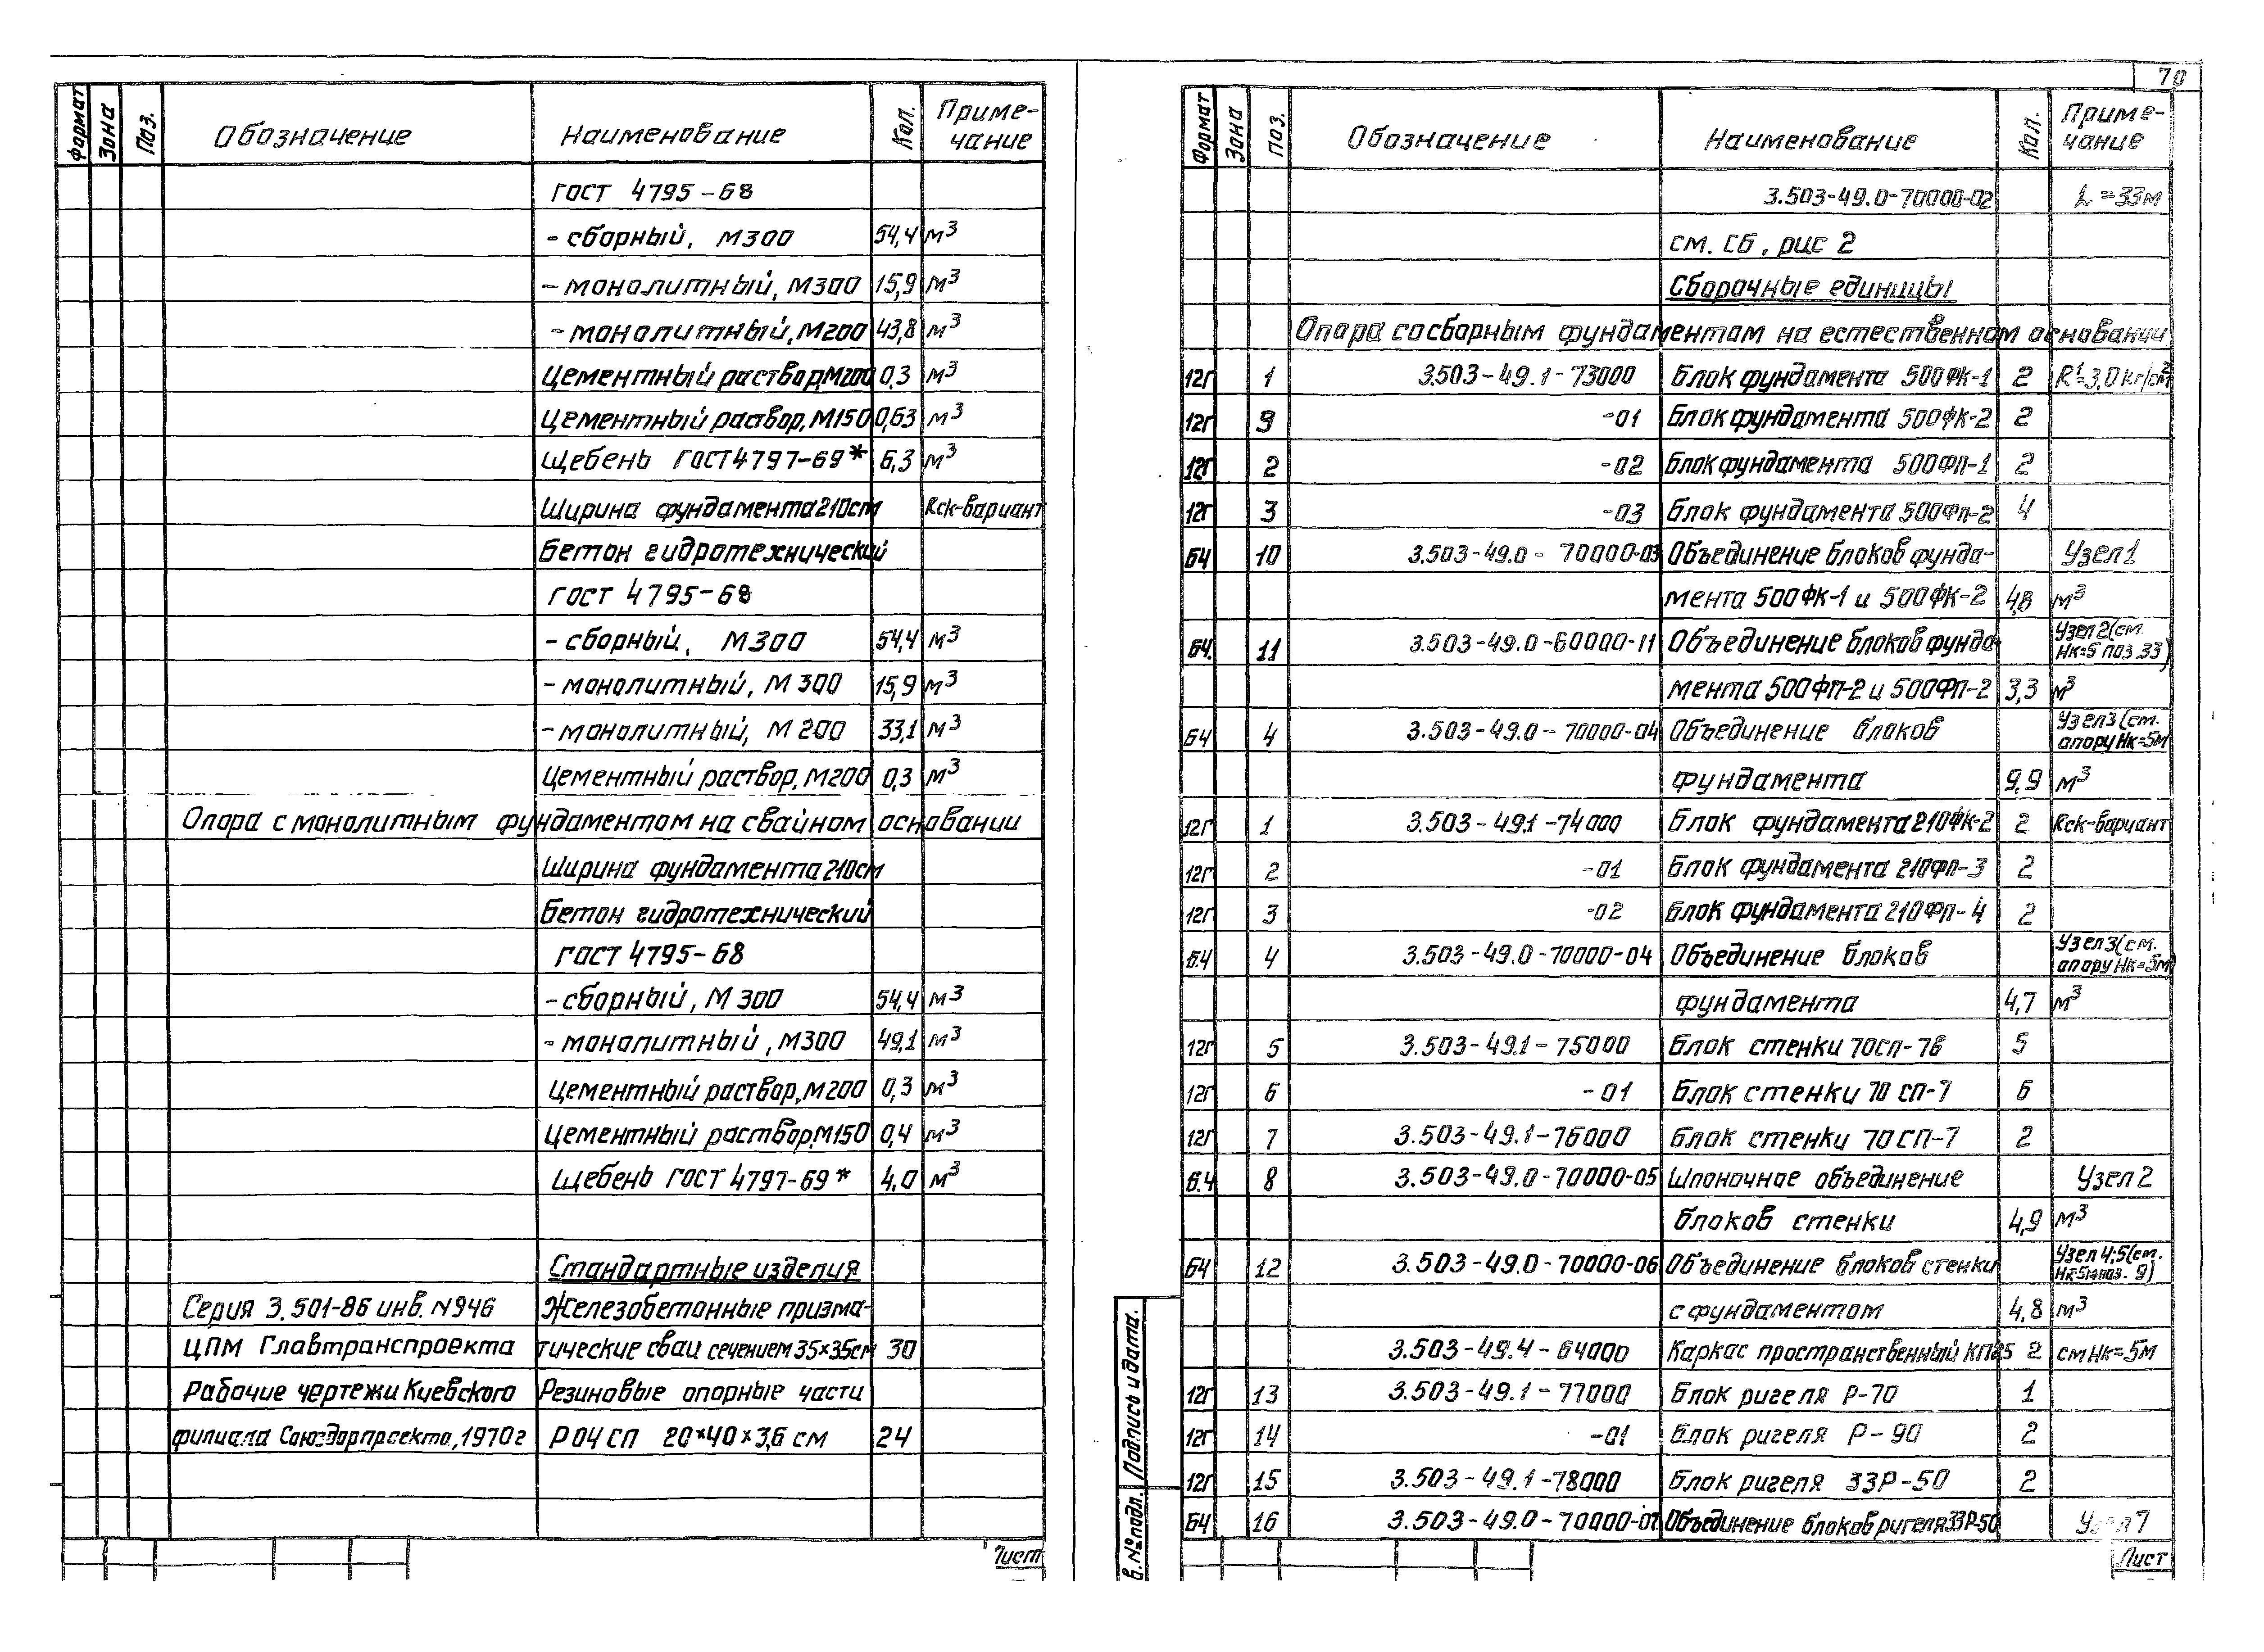 70
Формат Зона Поз. Обозначение Наименование Кол. Приме-
чание
ГОСТ 4795-68
- сборный, М300 54,4 м³
- монолитный, М300 15,9 м³
- монолитный, М200 43,8 м³
Цементный раствор, М200 0,3 м³
Цементный раствор, М150 0,63 м³
Щебень ГОСТ 4797-69* 6,3 м³
Ширина фундамента 210см Rск-вариант
Бетон гидротехнический
ГОСТ 4795-68
- сборный, М300 54,4 м³
- монолитный, М300 15,9 м³
- монолитный, М200 33,1 м³
Цементный раствор, М200 0,3 м³
Опора с монолитным фундаментом на свайном основании
Ширина фундамента 210см
Бетон гидротехнический
ГОСТ 4795-68
- сборный, М300 54,4 м³
- монолитный, М300 49,1 м³
Цементный раствор, М200 0,3 м³
Цементный раствор, М150 0,4 м³
Щебень ГОСТ 4797-69* 4,0 м³
Стандартные изделия
Серия 3.501-86 инв. N946 Железобетонные призма-
ЦПМ Главтранспроекта тические сваи сечением 35×35см 30
Рабочие чертежи Киевского Резиновые опорные части
филиала Союздорпроекта, 1970г РОЧСП 20×40×3,6 см 24
Лист
Формат Зона Поз. Обозначение Наименование Кол. Приме-
чание
3.503-49.0-70000-02 L=33м
см. СБ, рис 2
Сборочные единицы
Опора со сборным фундаментом на естественном основании
12Г 1 3.503-49.1-73000 Блок фундамента 500ФК-1 2 R¹=3,0кг/см²
12Г 9 -01 Блок фундамента 500ФК-2 2
12Г 2 -02 Блок фундамента 500ФП-1 2
12Г 3 -03 Блок фундамента 500ФП-2 4
БЧ 10 3.503-49.0-70000-03 Объединение блоков фунда- Узел 1
мента 500ФК-1 и 500ФК-2 4,8 м³
БЧ. 11 3.503-49.0-60000-11 Объединение блоков фунда- Узел 2 (см. Нк=5 поз. 33)
мента 500ФП-2 и 500ФП-2 3,3 м³
БЧ 4 3.503-49.0-70000-04 Объединение блоков Узел 3 (см. опору Нк=5м
фундамента 9,9 м³
12Г 1 3.503-49.1-74000 Блок фундамента 210ФК-2 2 Rск-вариант
12Г 2 -01 Блок фундамента 210ФП-3 2
12Г 3 -02 Блок фундамента 210ФП-4 2
БЧ 4 3.503-49.0-70000-04 Объединение блоков Узел 3 (см. опору Нк=5м)
фундамента 4,7 м³
12Г 5 3.503-49.1-75000 Блок стенки 70СП-7б 5
12Г 6 -01 Блок стенки 70 СП-7 6
12Г 7 3.503-49.1-76000 Блок стенки 70СП-7 2
БЧ 8 3.503-49.0-70000-05 Шпоночное объединение Узел 2
блоков стенки 4,9 м³
БЧ 12 3.503-49.0-70000-06 Объединение блоков стенки Узел 4;5 (см. Нк=5м поз. 9)
с фундаментом 4,8 м³
3.503-49.4-64000 Каркас пространственный КП25 2 см Нк=5м
12Г 13 3.503-49.1-77000 Блок ригеля Р-70 1
12Г 14 -01 Блок ригеля Р-90 2
12Г 15 3.503-49.1-78000 Блок ригеля 33Р-50 2
БЧ 16 3.503-49.0-70000-07 Объединение блоков ригеля 33Р-50 Узел 7
Подпись и дата.
в. № подл.
Лист